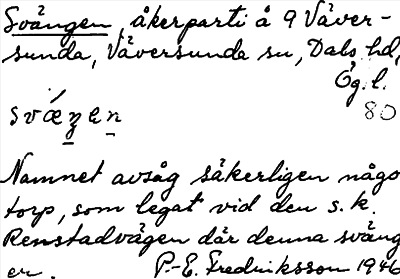 Svängen, åkerparti å 9 Väver-
sunda, Väversunda sn, Dals hd,
Ög. l.
80
Namnet avsåg säkerligen någo
torp, som legat vid den s.k.
Renstadvägen där denna sväng
er. P.-E. Fredriksson 1946